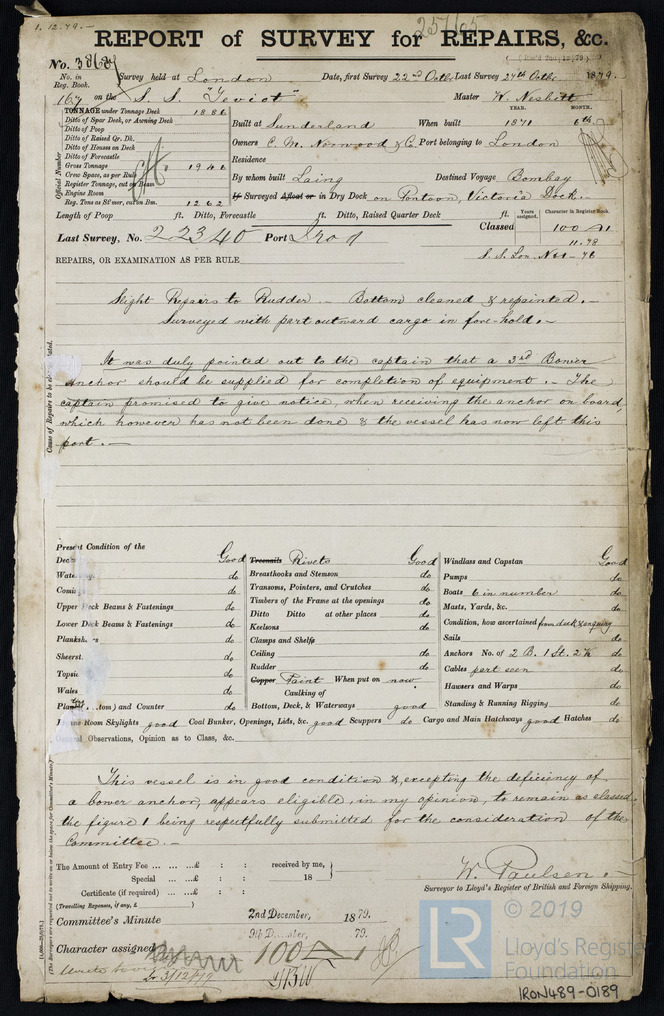 1.12.79.
25765
REPORT of SURVEY for REPAIRS, &c.
No.
No. in Reg. Book. Survey held at London Date, first Survey 22nd Octbr Last Survey 27th Octbr 1879.
167 on the S. S. "Teviot" Master W. Nesbitt
TONNAGE under Tonnage Deck 1886
Ditto of Spar Deck, or Awning Deck
Ditto of Poop
Ditto of Raised Qr. Dk.
Ditto of Houses on Deck
Ditto of Forecastle
Gross Tonnage 1941
Crew Space, as per Rule
Register Tonnage, cut on Beam
Engine Room
Reg. Tons as Steamer, cut on Bm. 1262
Official Number
YEAR. MONTH.
Built at Sunderland When built 1871 6th
Owners C. M. Norwood & Co Port belonging to London
Residence
By whom built Laing Destined Voyage Bombay
If Surveyed Afloat or in Dry Dock on Pontoon, Victoria Dock.
Length of Poop ft. Ditto, Forecastle ft. Ditto, Raised Quarter Deck ft.
Years assigned. Character in Register Book
Classed 100 A 1
11.78
Last Survey, No. 22340 Port Iron
S. S. Lon. No1 - 76
REPAIRS, OR EXAMINATION AS PER RULE
Slight Repairs to Rudder. - Bottom cleaned & repainted. -
Surveyed with part outward cargo in fore-hold. -
It was duly pointed out to the captain that a 3rd Bower
Anchor should be supplied for completion of equipment. - The
captain promised to give notice, when receiving the anchor on board,
which however has not been done & the vessel has now left this
port. -
Cause of Repairs to be
Present Condition of the
Good
do
Upper Deck Beams & Fastenings do
Lower Deck Beams & Fastenings do
do
do
do
Wales do
and Counter do
Treenails Rivets Good
Breasthooks and Stemson do
Transoms, Pointers, and Crutches do
Timbers of the Frame at the openings do
Ditto Ditto at other places do
Keelsons do
Clamps and Shelfs
Ceiling do
Rudder do
Copper Paint When put on now
Caulking of
Bottom, Deck, & Waterways good
Windlass and Capstan Good
Pumps do
Boats 6 in number do
Masts, Yards, &c. do
Condition, how ascertained from deck & enquiry
Sails do
Anchors No. of 2 B. 1 St. 2 K do
Cables part seen do
Hawsers and Warps do
Standing & Running Rigging do
Room Skylights good Coal Bunker, Openings, Lids, &c. good Scuppers do Cargo and Main Hatchways good Hatches do
General Observations, Opinion as to Class, &c.
This vessel is in good condition &, excepting the deficiency of
a bower anchor, appears eligible, in my opinion, to remain as classed,
the figure 1 being respectfully submitted for the consideration of the
Committee. -
The Amount of Entry Fee ... ... ...£ : : received by me,
Special ... ...£ : : 18
Certificate (if required) ... ...£ : :
(Travelling Expenses, if any, £ )
W. Paulsen. -
Surveyor to Lloyd's Register of British and Foreign Shipping.
Committee's Minute 2nd December, 1879.
9th December, 79.
Character assigned 100 A 1
3/12/79
© 2019
LR
Lloyd's Register
Foundation
IRON489-0189